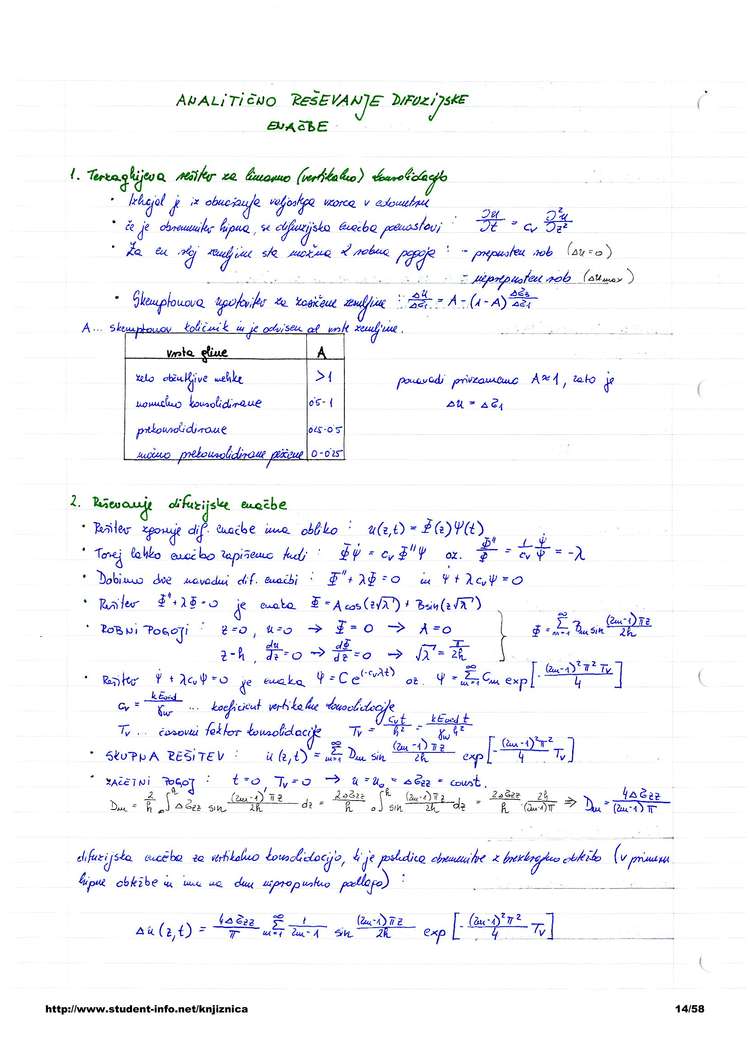 ANALITIČNO REŠEVANJE DIFUZIJSKE
ENAČBE
1. Terzaghijeva rešitev za linearno (vertikalno) konsolidacijo
• Izhajal je iz obnašanja valjastega vzorca v edometru
• če je obremenitev hipna, se difuzijska enačba poenostavi : ∂u/∂t = cv ∂²u/∂z²
• Za en sloj zemljine sta možna 2 robna pogoja : - prepusten rob (Δu=0)
- neprepusten rob (Δu max)
• Skemptonova ugotovitev za zasičene zemljine : Δu/Δσ1 = A - (1-A) Δσ3/Δσ1
A... skemptonov količnik in je odvisen od vrste zemljine.
vrsta gline | A
zelo občutljive mehke | >1
normalno konsolidirane | 0.5-1
prekonsolidirane | 0.25-0.5
močno prekonsolidirane peščene | 0-0.25
ponavadi privzamemo A≈1, zato je
Δu = Δσ1
2. Reševanje difuzijske enačbe
• Rešitev zgornje dif. enačbe ima obliko : u(z,t) = Φ(z)Ψ(t)
• Torej lahko enačbo zapišemo tudi : ΦΨ̇ = cv Φ''Ψ oz. Φ''/Φ = 1/cv Ψ̇/Ψ = -λ
• Dobimo dve navadni dif. enačbi : Φ'' + λΦ = 0 in Ψ̇ + λcvΨ = 0
• Rešitev Φ'' + λΦ = 0 je enaka Φ = A cos(z√λ) + B sin(z√λ)
• ROBNI POGOJI : z=0, u=0 → Φ=0 → A=0
z=h, du/dz=0 → dΦ/dz=0 → √λ = π/2h
Φ = Σ(m=1, ∞) Bm sin (2m-1)πz/2h
• Rešitev Ψ̇ + λcvΨ = 0 je enaka Ψ = C e^(-cvλt) oz. Ψ = Σ(m=1, ∞) Cm exp[-(2m-1)²π²Tv/4]
cv = kEoed/γw ... koeficient vertikalne konsolidacije
Tv ... časovni faktor konsolidacije Tv = cvt/h² = kEoed t/γw h²
• SKUPNA REŠITEV : u(z,t) = Σ(m=1, ∞) Dm sin (2m-1)πz/2h exp[-(2m-1)²π²/4 Tv]
• ZAČETNI POGOJ : t=0 Tv=0 → u = u0 = Δσzz = const.
Dm = 2/h ₀∫ʰ Δσzz sin (2m-1)πz/2h dz = 2Δσzz/h ₀∫ʰ sin (2m-1)πz/2h dz = 2Δσzz/h 2h/(2m-1)π ⇒ Dm = 4Δσzz/(2m-1)π
difuzijska enačba za vertikalno konsolidacijo, ki je posledica obremenitve z brezkrajno obtežbo (v primeru
hipne obtežbe in ima na dnu nepropustno podlago) :
Δu(z,t) = 4Δσzz/π Σ(m=1, ∞) 1/2m-1 sin (2m-1)πz/2h exp[-(2m-1)²π²/4 Tv]
http://www.student-info.net/knjiznica 14/58